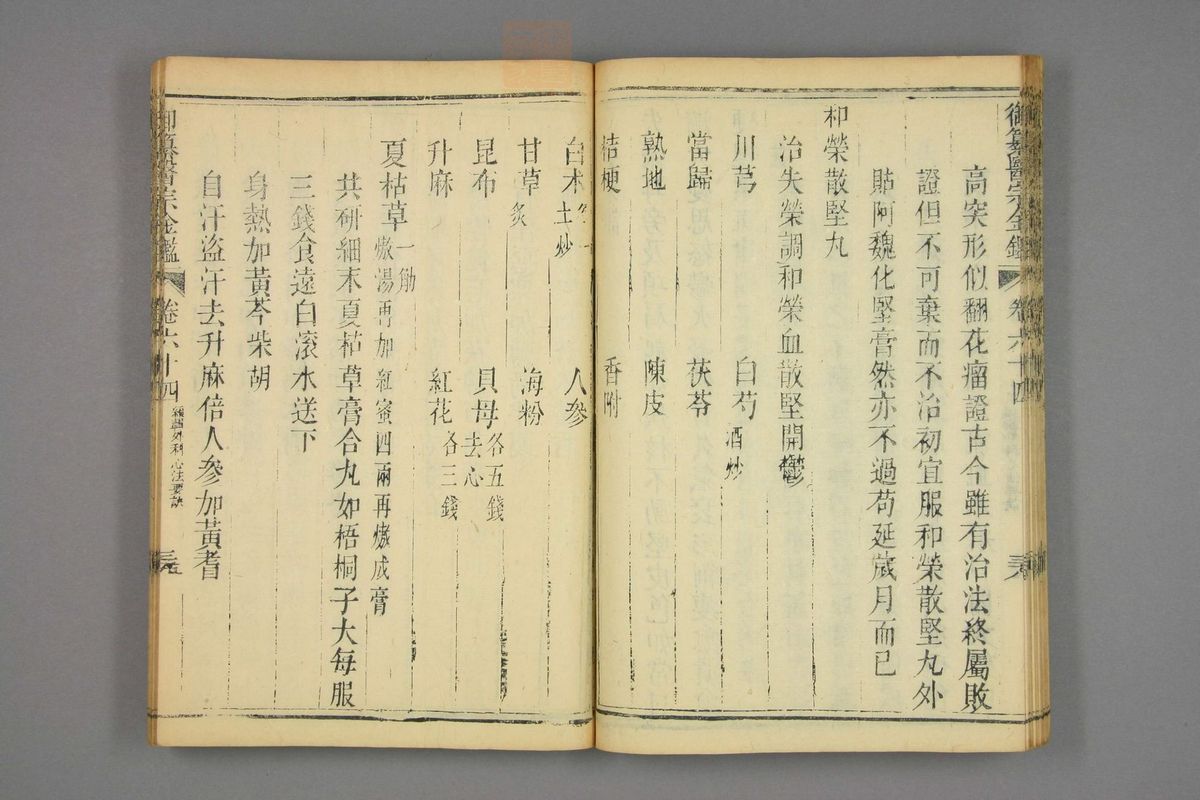 御纂醫宗金鑑 卷六十四
高突形似翻花瘤證古今雖有治法終屬敗
證但不可棄而不治初宜服和榮散堅丸外
貼阿魏化堅膏然亦不過苟延歲月而已
和榮散堅丸
治失榮調和榮血散堅開鬱
川芎 白芍酒炒
當歸 茯苓
熟地 陳皮
桔梗 香附
白术土炒 人參
甘草炙 海粉
昆布 貝母去心各五錢
升麻 紅花各三錢
夏枯草一觔熬湯再加紅蜜四兩再熬成膏
共研細末夏枯草膏合丸如梧桐子大每服
三錢食遠白滾水送下
身熱加黃芩柴胡
自汗盜汗去升麻倍人參加黃耆
御纂醫宗金鑑 卷六十四 編輯外科心法要訣